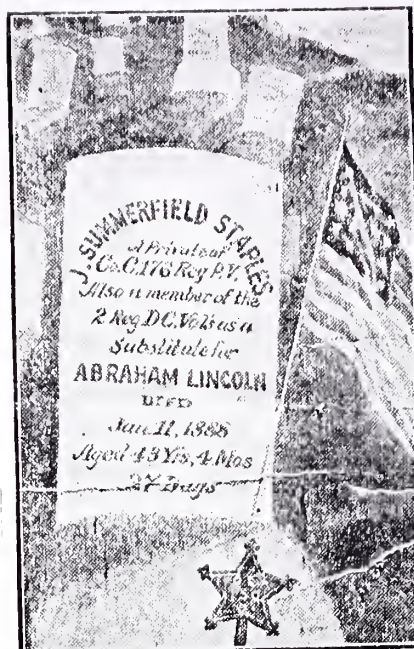 J. SUMMERFIELD STAPLES
A Private of
Co. C. 176 Reg P.V.
Also a member of the
2 Reg D.C. Vols as a
Substitute for
ABRAHAM LINCOLN
DIED
Jan. 11, 1888
Aged 43 Yrs, 4 Mos
27 Days